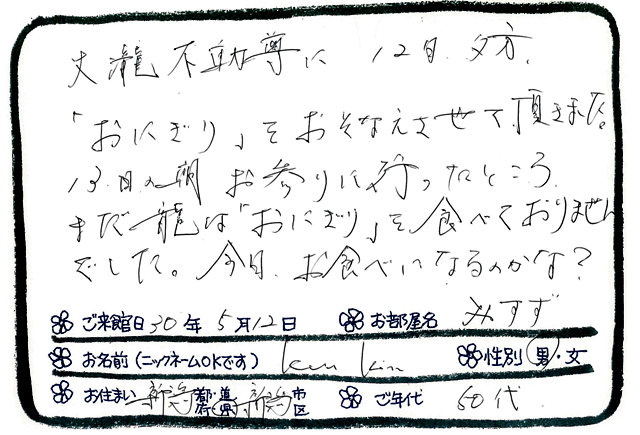 大瀧不動尊に 12日 夕方、
「おにぎり」をおそなえさせて頂きました。
13日の朝 お参りに行ったところ
まだ龍は「おにぎり」を食べておりません
でした。今日、お食べになるのかな?
ご来館日 30年 5月12日 お部屋名 みすず
お名前(ニックネームOKです) ken kin 性別 男・女
お住まい 新潟 都道府県 新潟 市区 ご年代 60代